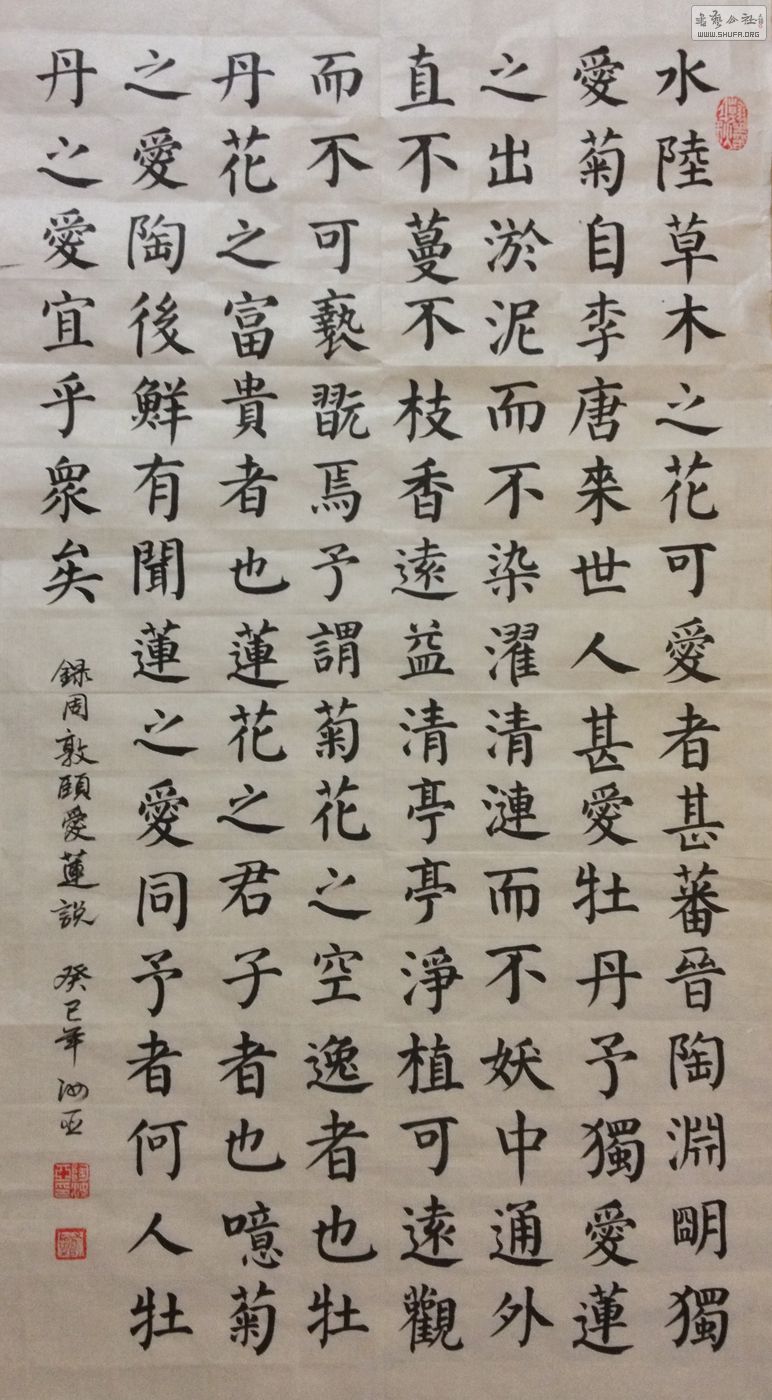 水陸草木之花可愛者甚蕃晉陶淵眀獨
愛菊自李唐來世人甚愛牡丹予獨愛蓮
之出淤泥而不染濯清漣而不妖中通外
直不蔓不枝香遠益清亭亭淨植可遠觀
而不可褻翫焉予謂菊花之空逸者也牡
丹花之富貴者也蓮花之君子者也噫菊
之愛陶後鮮有聞蓮之愛同予者何人牡
丹之愛宜乎衆矣
録周敦頤愛蓮說 癸巳年
書藝公社
WWW.SHUFA.ORG